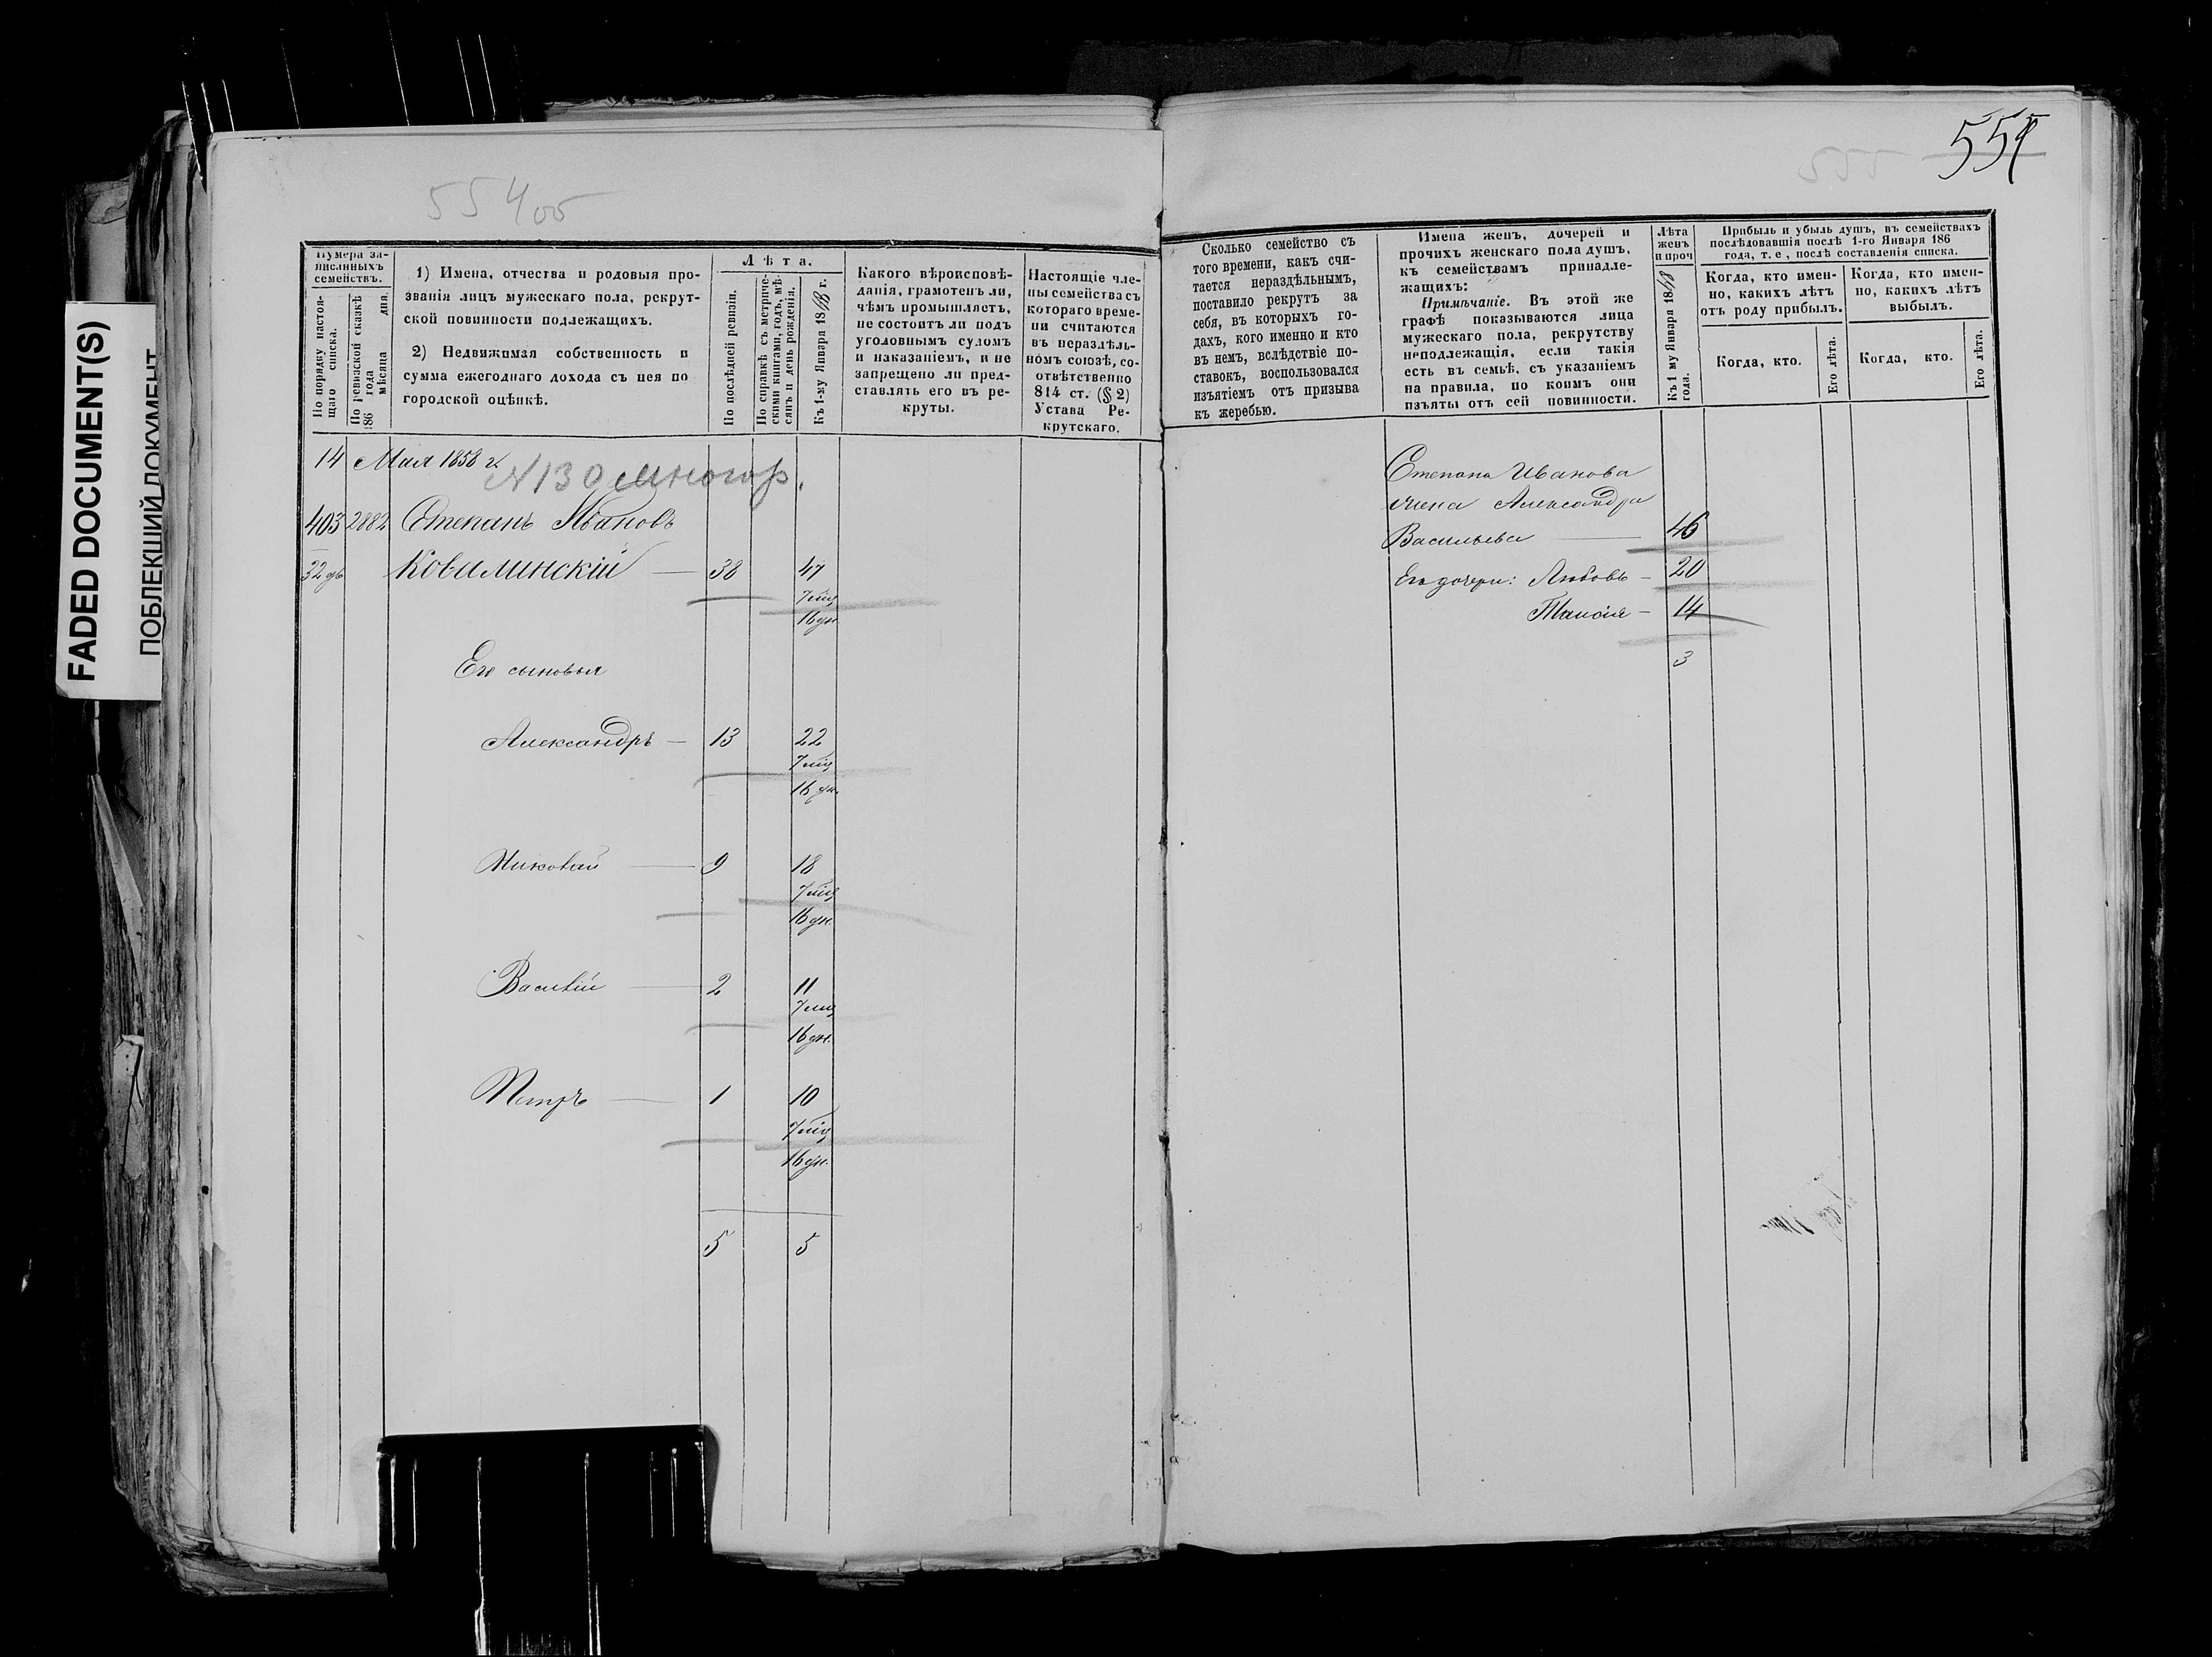 FADED DOCUMENT(S)
ПОБЛЕКШИЙ ДОКУМЕНТ
554об
Нумера за-
писанныхъ
семействъ.
По порядку настоя-
щаго списка.
По ревизской сказкѣ
186 года
мѣсяца дня.
1) Имена, отчества и родовыя про-
званія лицъ мужескаго пола, рекрут-
ской повинности подлежащихъ.
2) Недвижимая собственность и
сумма ежегоднаго дохода съ нея по
городской оцѣнкѣ.
Лѣта.
По послѣдней ревизіи.
По справкѣ съ метриче-
скими книгами, годъ, мѣ-
сяцъ и день рожденія.
Къ 1-му Января 18 г.
Какого вѣроисповѣ-
данія, грамотенъ ли,
чѣмъ промышляетъ,
не состоитъ ли подъ
уголовнымъ судомъ
и наказаніемъ, и не
запрещено ли пред-
ставлять его въ ре-
круты.
Настоящіе чле-
ны семейства съ
котораго време-
ни считаются
въ нераздѣль-
номъ союзѣ, со-
отвѣтственно
814 ст. (§ 2)
Устава Ре-
крутскаго.
14 Мая 1858 г.
N130 многор.
403 2882 Степанъ Ивановъ
32 Ковалинскій — 38 47
7 мц
16 дн.
Его сыновья
Александръ — 13 22
7 мц
16 дн.
Николай — 9 18
7 мц
16 дн.
Василій — 2 11
7 мц
16 дн.
Петръ — 1 10
7 мц
16 дн.
5 5
555
Сколько семейство съ
того времени, какъ счи-
тается нераздѣльнымъ,
поставило рекрутъ за
себя, въ которыхъ го-
дахъ, кого именно и кто
въ немъ, вслѣдствіе по-
ставокъ, воспользовался
изъятіемъ отъ призыва
къ жеребью.
Имена женъ, дочерей и
прочихъ женскаго пола душъ,
къ семействамъ принадле-
жащихъ:
Примѣчаніе. Въ этой же
графѣ показываются лица
мужескаго пола, рекрутству
неподлежащія, если такія
есть въ семьѣ, съ указаніемъ
на правила, по коимъ они
изъяты отъ сей повинности.
Лѣта
женъ
и проч
Къ 1 му Января 18
года.
Прибыль и убыль душъ, въ семействахъ
послѣдовавшія послѣ 1-го Января 186
года, т. е, послѣ составленія списка.
Когда, кто имен-
но, какихъ лѣтъ
отъ роду прибылъ.
Когда, кто имен-
но, какихъ лѣтъ
выбылъ.
Когда, кто.
Его лѣта.
Когда, кто.
Его лѣта.
Степана Иванова
жена Александра
Васильева — 46
Его дочери: Любовь — 20
Таисія — 14
3